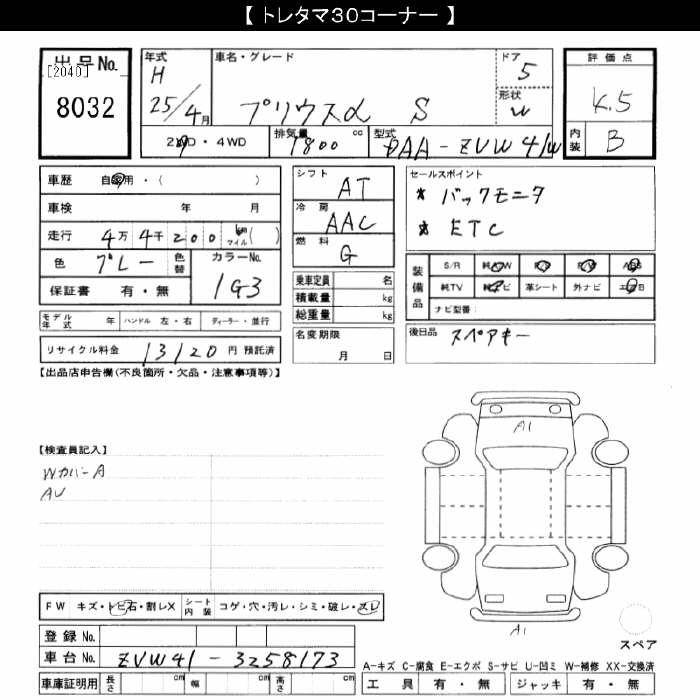 【 トレタマ30コーナー 】
出品No.
[2040]
8032
年式
H
25/4月
車名・グレード
プリウスα S
ドア
5
形状
W
評価点
4.5
内装
B
2WD・4WD
排気量
1800 cc
型式
DAA-ZVW41W
車歴 自家用・( )
車検 年 月
走行 4万 4千 200 km マイル( )
色 グレー 色替
カラーNo.
1G3
保証書 有・無
モデル年式 年 ハンドル 左・右 ディーラー・並行
リサイクル料金 13120 円 預託済
シフト
AT
冷房
AAC
燃料
G
乗車定員 名
積載量 kg
総重量 kg
名変期限
月 日
セールスポイント
* バックモニタ
* ETC
装備品
S/R 純A/W P/S P/W ABS
純TV 純ナビ 革シート 外ナビ エアB
ナビ型番:
後日品
スペアキー
【出品店申告欄(不良箇所・欠品・注意事項等)】
【検査員記入】
WカバーA
AU
A1
A1
スペア
FW キズ・トビ石・割レX シート内装 コゲ・穴・汚レ・シミ・破レ・スレ
登録 No.
車台 No. ZVW41-3258173
車庫証明用 長さ cm 幅 cm 高さ cm
A-キズ C-腐食 E-エクボ S-サビ U-凹ミ W-補修 XX-交換済
工具 有・無 ジャッキ 有・無